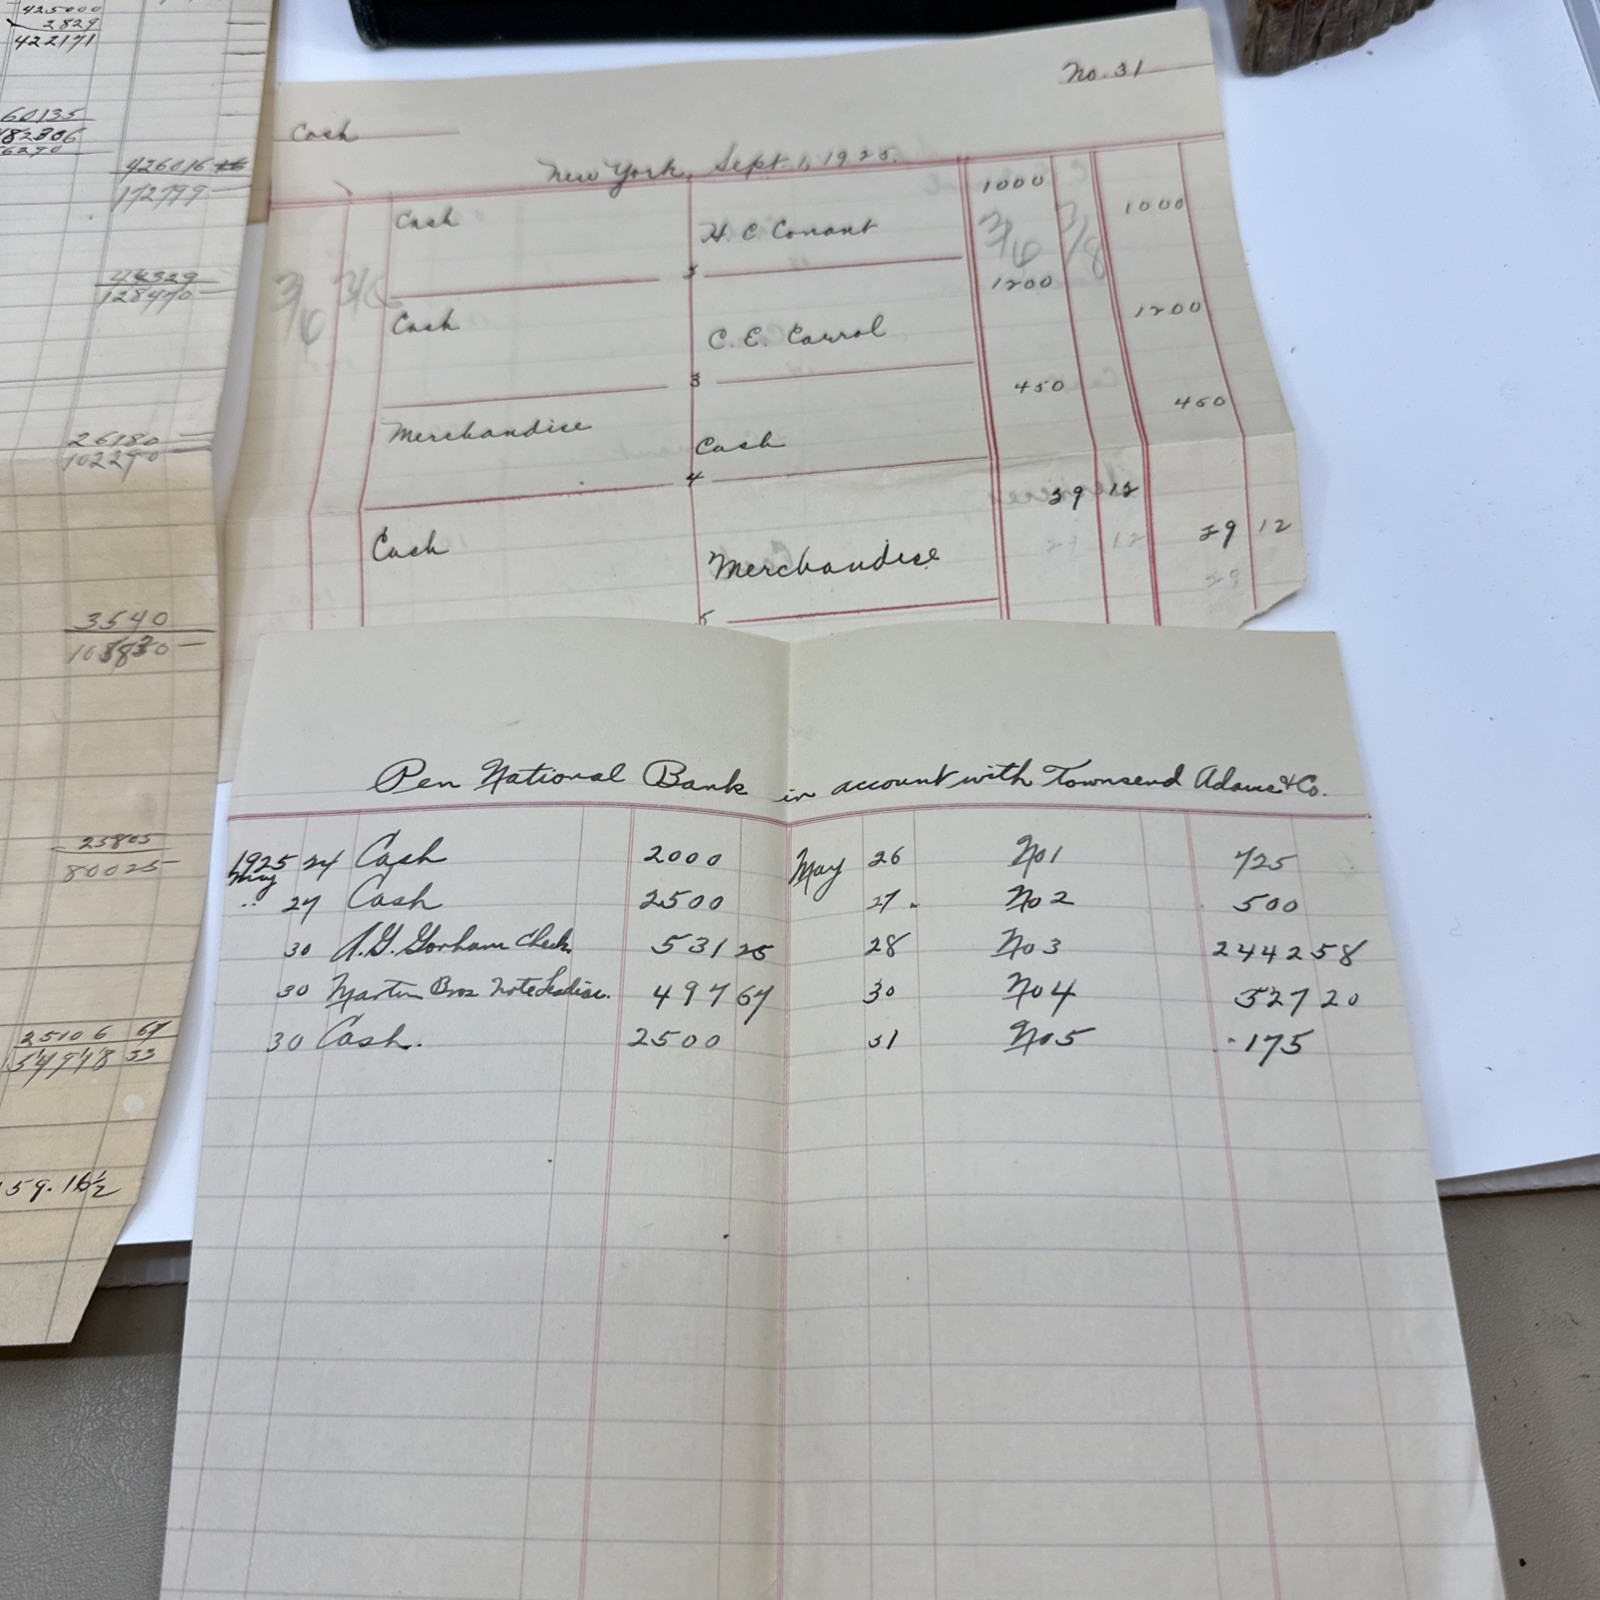 425000
2829
422171
60135
426016
172799
44329
128470
26180
102290
3540
25805
80025
25106 67
54978 33
59.16½
No. 31
Cash
New York, Sept. 1, 1925.
Cash H. C. Conant 1000 1000
3/6 3/6 3/6 3/8
2
Cash C. E. Carrol 1200 1200
3
Merchandise Cash 450 450
4
Cash Merchandise 29 12 29 12
5
Pen National Bank in account with Townsend Adams & Co.
1925 May 24 Cash 2000 May 26 No 1 725
" 27 Cash 2500 27 No 2 500
30 A.G. Gorham Check 531 25 28 No 3 2442 58
30 Martin Bros Note 497 67 30 No 4 327 20
30 Cash. 2500 31 No 5 175